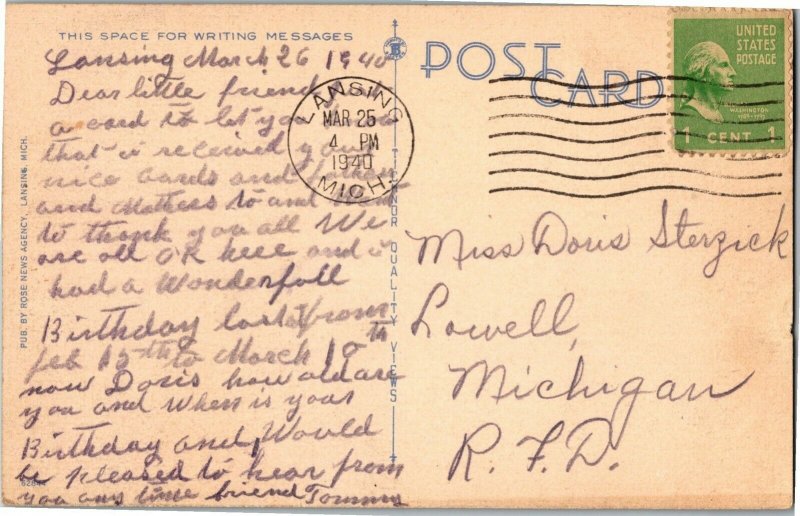 THIS SPACE FOR WRITING MESSAGES
Lansing March 26 1940
Dear little friend just
a card to let you know
that i received your
nice cards and fathers
and Mothers to and Want
to thank you all We
are all OK here and i
had a Wonderfull
Birthday lasted from
feb 15th to March 10th
now Doris how old are
you and When is your
Birthday and, Would
be pleased to hear from
you any time friend Tommy
62844
PUB. BY ROSE NEWS AGENCY, LANSING, MICH.
TICHNOR QUALITY VIEWS
POST
CARD
LANSING
MAR 25
4 PM
1940
MICH.
UNITED
STATES
POSTAGE
WASHINGTON
1 CENT 1
Miss Doris Sterzick
Lowell,
Michigan
R.F.D.